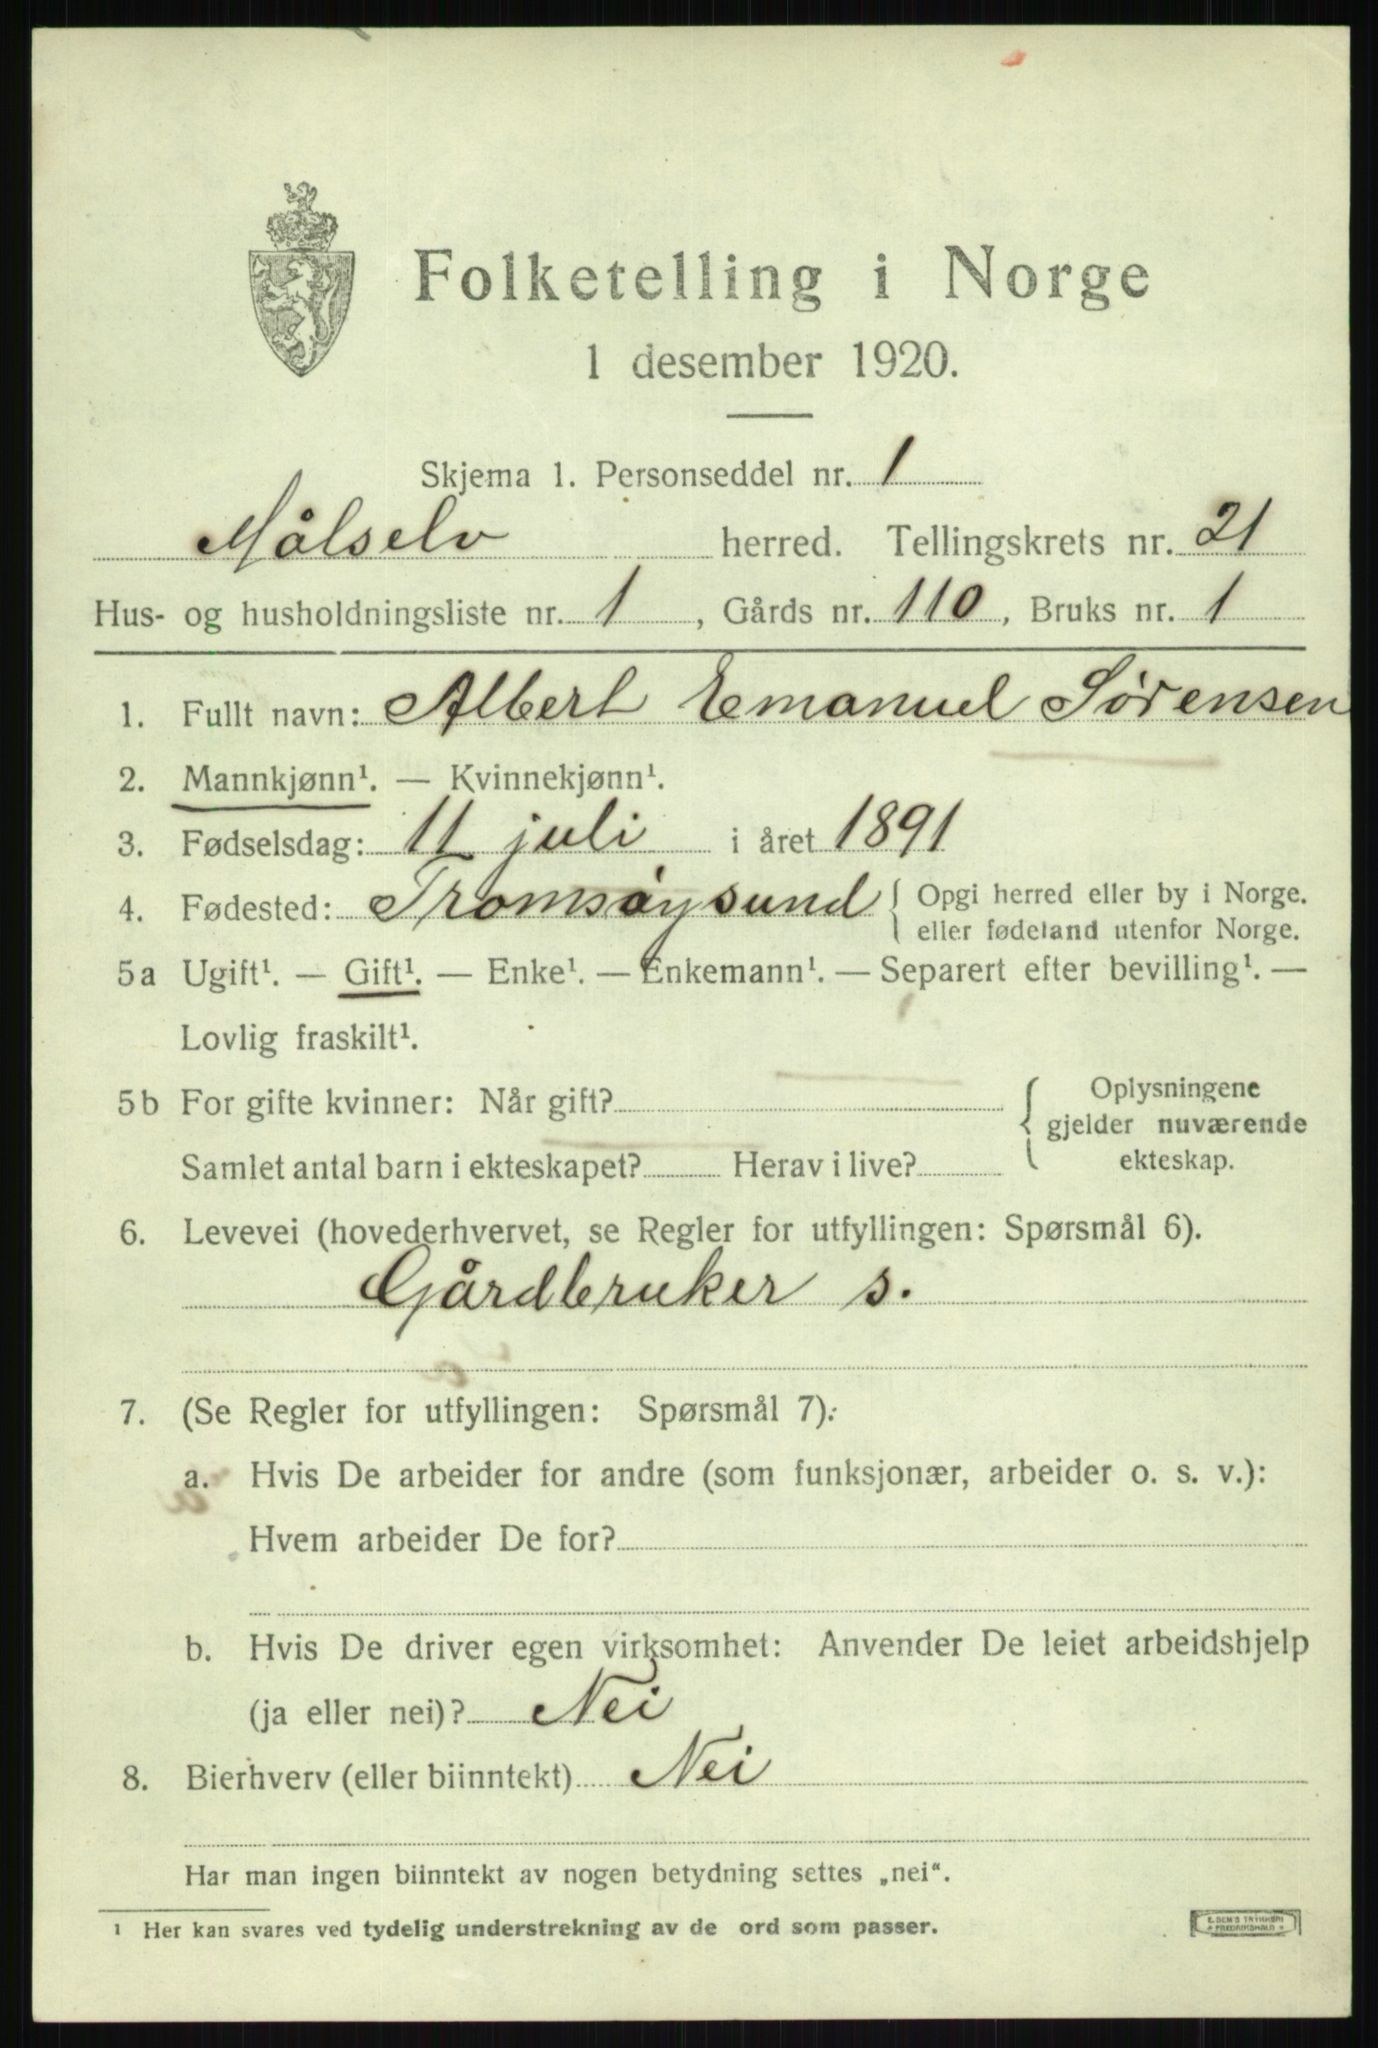 Folketelling i Norge
1 desember 1920.
Skjema 1. Personseddel nr. 1
Målselv herred. Tellingskrets nr. 21
Hus- og husholdningsliste nr. 1, Gårds nr. 110, Bruks nr. 1
1. Fullt navn: Albert Emanuel Sørensen
2. Mannkjønn¹. — Kvinnekjønn¹.
3. Fødselsdag: 11 juli i året 1891
4. Fødested: Tromsøysund { Opgi herred eller by i Norge.
eller fødeland utenfor Norge.
5a Ugift¹. — Gift¹. — Enke¹. — Enkemann¹. — Separert efter bevilling¹. —
Lovlig fraskilt¹.
5b For gifte kvinner: Når gift?
Samlet antal barn i ekteskapet? Herav i live?
{ Oplysningene
gjelder nuværende
ekteskap.
6. Levevei (hovederhvervet, se Regler for utfyllingen: Spørsmål 6).
Gårdbruker s.
7. (Se Regler for utfyllingen: Spørsmål 7):
a. Hvis De arbeider for andre (som funksjonær, arbeider o. s. v.):
Hvem arbeider De for?
b. Hvis De driver egen virksomhet: Anvender De leiet arbeidshjelp
(ja eller nei)? Nei
8. Bierhverv (eller biinntekt) Nei
Har man ingen biinntekt av nogen betydning settes „nei“.
¹ Her kan svares ved tydelig understrekning av de ord som passer.